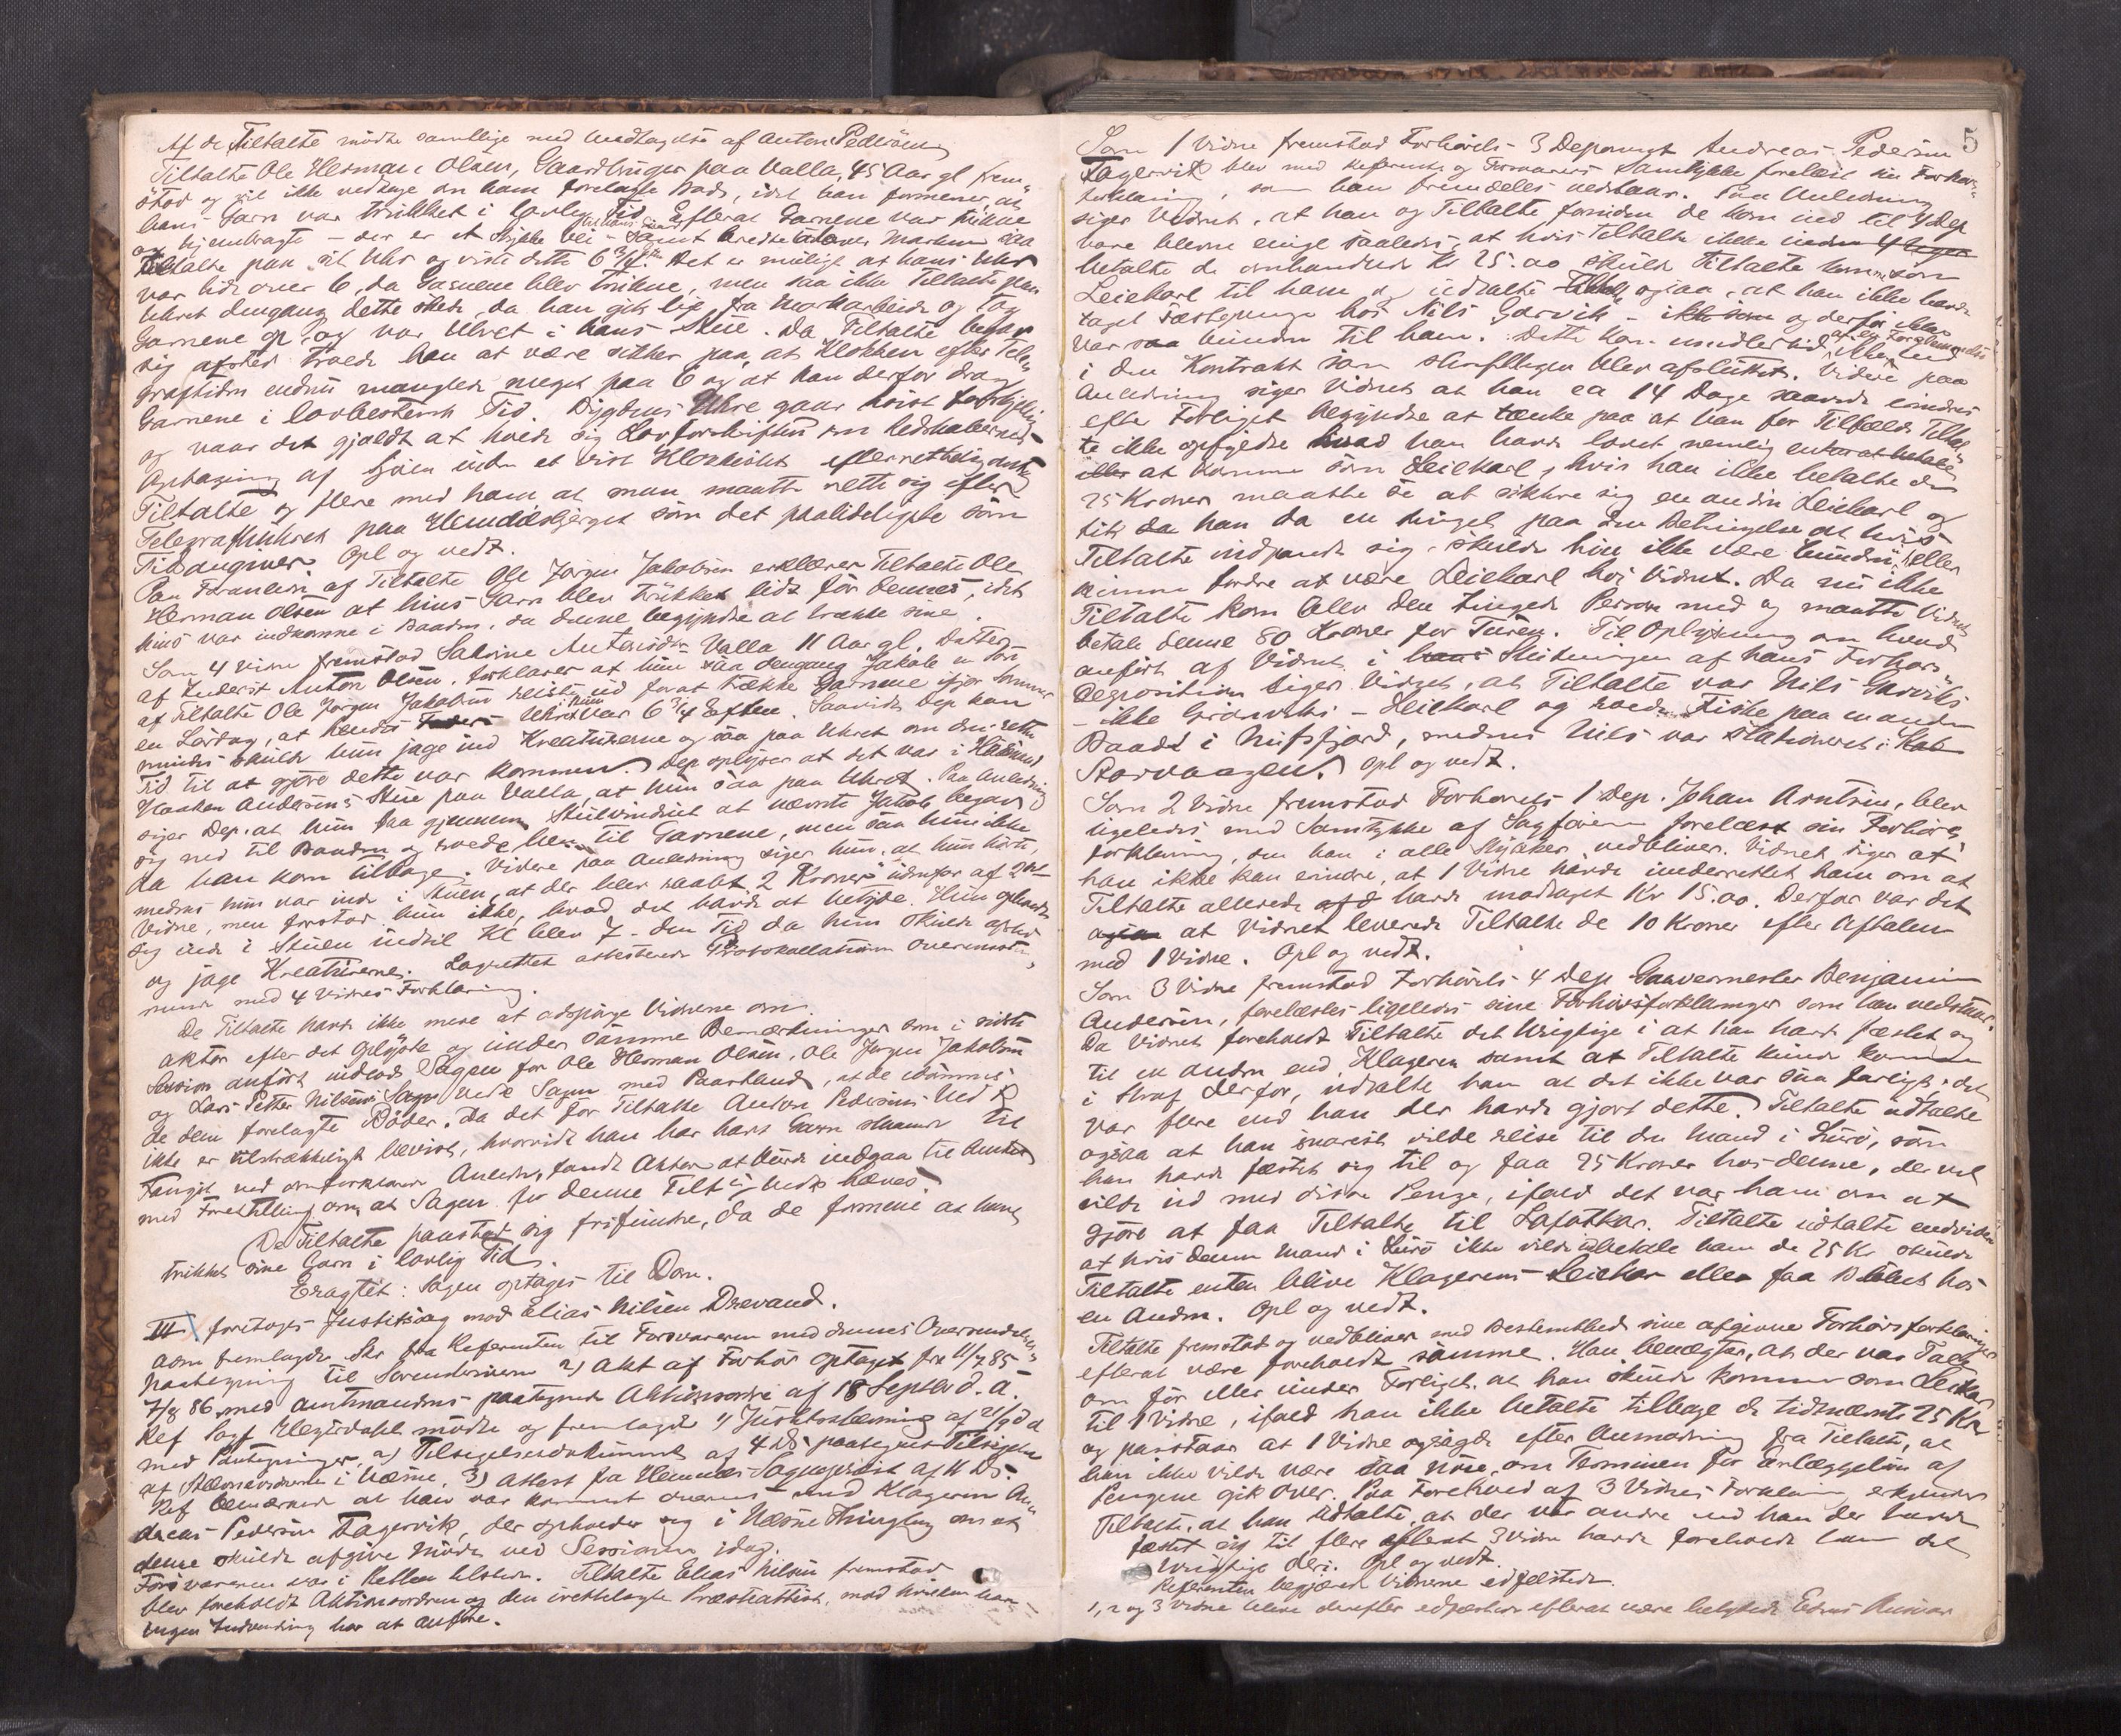 Af de Tiltalte mødte samtlige med Undtagelse af Anton Pedersen
Tiltalte Ole Herman Olsen, Gaardbruger paa Valla, 45 Aar gl frem-
stod og vil ikke vedtage den ham forelagte Bøde, idet han formener, at
hans Garn var trukket i lovlig Tid. Efterat Garnene var trukne
og hjembragte – der er et Stykke Vei – samt bredte udover Marken saa
Tiltalte paa sit Uhr og viste dette 6 3/4. Det er muligt at hans Uhr
var lidt over 6, da Garnene blev trukne, men saa ikke Tiltalte paa
Uhret dengang dette skede, da han gik lige fra Markarbeide og tog
Garnene op, og var Uhret i hans Stue. Da Tiltalte begav
sig afsted troede han at være sikker paa, at Klokken efter Tele-
graftiden endnu manglede meget paa 6 og at han derfor drog
Garnene i lovbestemt Tid. Bygdens Uhre gaar høist forskjellig
og naar det gjaldt at holde sig Lovforskriften om Redskabernes
Optagning af Sjøen inden et vist Klokkeslet efterrettelig
Tiltalte og flere med ham at man maatte rette sig efter
Telegrafuhret paa Hemnesbjerget som det paalideligste som
Tidangiver. Opl og vedt.
Paa Foranledn af Tiltalte Ole Jørgen Jakobsen erklærer Tiltalte Ole
Herman Olsen at hins Garn blev trukket lidt før dennes, idet
hins var indkomne i Baaden, da denne begyndte at trække sine.
Som 4 Vidne fremstod Sabine Antonsdtr Valla 11 Aar gl. Datter
af Inderst Anton Olsen, forklarer at hun saa dengang Jakob en Søn
af Tiltalte Ole Jørgen Jakobsen reiste ud forat trække Garnene ifjor Sommer
en Lørdag, at hendes Uhr var 6 3/4 Eftm. Saavidt Dep kan
mindes skulde hun jage ind Kreaturerne og saa paa Uhret om den rette
Tid til at gjøre dette var kommen. Dep oplyser at det var i Husmand
Haakon Andersens Stue paa Valla, at hun saa paa Uhret. Paa Anledning
siger Dep. at hun saa gjennem Stuevinduet at nævnte Jakob begav
sig ned til Baaden og roede hen til Garnene, men saa hun ikke
da han kom tilbage. Videre paa Anledning siger hun, at hun hørte,
medens hun var inde i Stuen, at der blev raabt 2 Kroner udenfor af 2det
Vidne, men forstod hun ikke, hvad det havde at betyde. Hun opholdt
sig inde i Stuen indtil Kl blev 7 – den Tid da hun skulde afsted
og jage Kreaturerne. Lagrettet attesterede Protokollationens overensstem-
mende med 4 Vidnes Forklaring.
De Tiltalte havde ikke mere at adspørge Vidnerne om.
Aktor efter det oplyste og under samme Bemærkninger som i sidste
Session anført indlod Sagen for Ole Herman Olsen, Ole Jørgen Jakobsen
og Lars Petter Nilsens Sags Vedk Sagen med Paastand, at de idømmes
de dem forelagte Bøder. Da det for Tiltalte Anton Pedersens Vedk
ikke er tilstrækkeligt bevist, hvorvidt han har havt Garn staaende til
Fangst ved omforklarede Anledn, fandt Aktor at burde indgaa til Amtet
med Forestilling om, at Sagen for denne Tiltaltes Vedk hæves.
De Tiltalte paastod sig frifundne, da de formene at have
trukket sine Garn i lovlig Tid.
Eragtet: Sagen optages til Dom.
III foretoges Justitssag mod Elias Nilsen Drevand.
Adm fremlagde Skr fra Referenten til Forsvareren med dennes Oversendelses-
paategning til Sorenskriveren 2) Akt af Forhør optaget fra 11/7 85
7/8 86 med Amtmandens paategnede Aktionsordre af 18 Septbr d. A.
Ref Sagf Hegerdahl mødte og fremlagde 1) Justitsstævning af 21/9 d a
med Paategninger, 2) Tilsigelsesdokument af 4 Ds paategnet Tilsigelse
af Stævnevidnerne i Næsne, 3) Attest fra Hemnæs Sogneprest af 11 Ds.
Ref bemærkede at han var kommet overens med Klageren An-
dreas Pedersen Fagervik, der opholder sig i Næsne Thinglag om at
denne skulde afgive Møde ved Sessionen idag.
Forsvareren var i Retten tilstede. Tiltalte Elias Nilsen fremstod
blev foreholdt Aktionsordren og den irettelagte Præsteattest, mod hvilken han
ingen Indvending har at anføre.
5
Som 1 Vidne fremstod Forhørets 3 Deponent Andreas Pedersen
Fagervik blev med Referents og Forsvarers Samtykke forelæst sin Forhørs-
forklaring, som han fremdeles vedstaar. Paa Anledning
siger Vidnet, at han og Tiltalte forinden de kom ind til 4 Dep
vare blevne enige saaledes, at hvis Tiltalte ikke inden
betalte de omhandlede Kr 25.00 skulde Tiltalte komme som
Leiekarl til ham og udtalte ogsaa, at han ikke havde
taget Fæstepenge hos Nils Garvik – og derfor ikke
var bunden til ham. Dette kom imidlertid ikke ind
i den Kontrakt som skriftligen blev afsluttet. Videre paa
Anledning siger Vidnet at han ca 14 Dage saavidt erindres
efter Forliget begyndte at tænke paa at han for Tilfælde Tiltal-
te ikke opfyldte hvad han havde lovet nemlig
at komme som Leiekarl, hvis han ikke betalte de
25 Kroner maatte se at sikkre sig en anden Leiekarl og
fik han da en tinget paa den Betingelse at hvis
Tiltalte indfandt sig, skulde hin ikke være bunden eller
kunne fordre at være Leiekarl hos Vidnet. Da nu ikke
Tiltalte kom blev den tingede Person med og maatte Vidnet
betale denne 80 Kroner for Turen. Til Oplysning om hvad
anført af Vidnet i Slutningen af hans Forhørs-
deposition siger Vidnet, at Tiltalte var Nils Garviks
– ikke – Leiekarl og roede Fiske paa en anden
Baad i Nufsfjord, medens Nils var stationeret i
Storvaagen. Opl og vedt.
Som 2 Vidne fremstod Forhørets 1 Dep. Johan Arntsen, blev
ligeledes med Samtykke af Sagførerne forelæst sin Forhørs-
forklaring, som han i alle Stykker vedbliver. Vidnet siger at
han ikke kan erindre, at 1 Vidne havde underrettet ham om at
Tiltalte allerede havde modtaget Kr 15.00. Derfor var det
at Vidnet leverede Tiltalte de 10 Kroner efter Aftalen
med 1 Vidne. Opl og vedt.
Som 3 Vidne fremstod Forhørets 4 Dep Garvermester Benjamin
Andersen, forelæstes ligeledes sine Forhørsforklaringer som han vedstaar.
Da Vidnet foreholdt Tiltalte det Urigtige i at han havde fæstet sig
til en anden end Klageren samt at Tiltalte kunde komme
i Straf derfor, udtalte han at det ikke var saa farligt, det
var flere end han der havde gjort dette. Tiltalte udtalte
ogsaa at han snarest vilde reise til den Mand i Lurø, som
han havde fæstet sig til og faa 25 Kroner hos denne, der vel
vilde ud med disse Penge, ifald det var ham om at
gjøre at faa Tiltalte til Lofotkar. Tiltalte udtalte endvidere
at hvis denne Mand i Lurø ikke vilde betale ham de 25 Kr skulde
Tiltalte enten blive Klagerens Leiekar eller faa Beløbet hos
en Anden. Opl og vedt.
Tiltalte fremstod og vedbliver med Bestemthed sine afgivne Forhørsforklaringer
efterat være foreholdt samme. Han benægter, at der var Tale
om før eller under Forliget, at han skulde komme som Leiekar
til 1 Vidne, ifald han ikke betalte tilbage de tidtnævnte 25 Kr
og paastaar at 1 Vidne ogsagde efter Anmodning fra Tiltalte, at
han ikke vilde være saa nøie, om Terminen for Erlæggelsen af
Pengene gik over. Paa Forehold af 3 Vidnes Forklaring, erkjender
Tiltalte, at han udtalte, at der var andre end han der havde
fæstet sig til flere efterat 3 Vidne havde foreholdt ham det
Urigtige deri. Opl og vedt.
Referenten begjærede Vidnerne edfæstede.
1, 2 og 3 Vidne bleve derefter edfæstede efterat være betydede Edens Ansvar